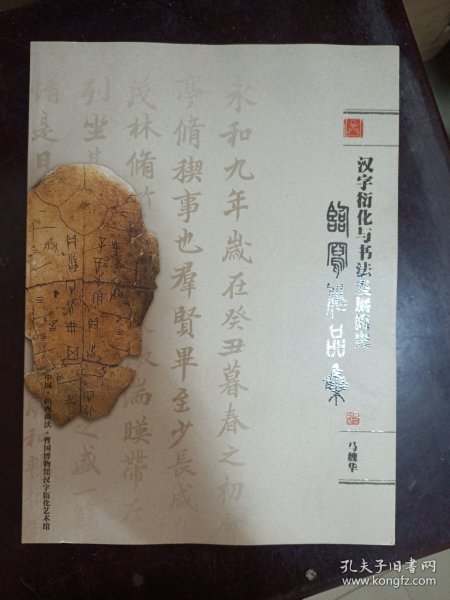 汉字衍化与书法发展
临写作品集
马魏华
永和九年歲在癸丑暮春之初
亭脩稧事也羣賢畢至少長咸
茂林脩竹 湍暎帶
列坐其 盛一
是日
中国·山西曲沃·晋国博物馆汉字衍化艺术馆
孔夫子旧书网
www.kongfz.com